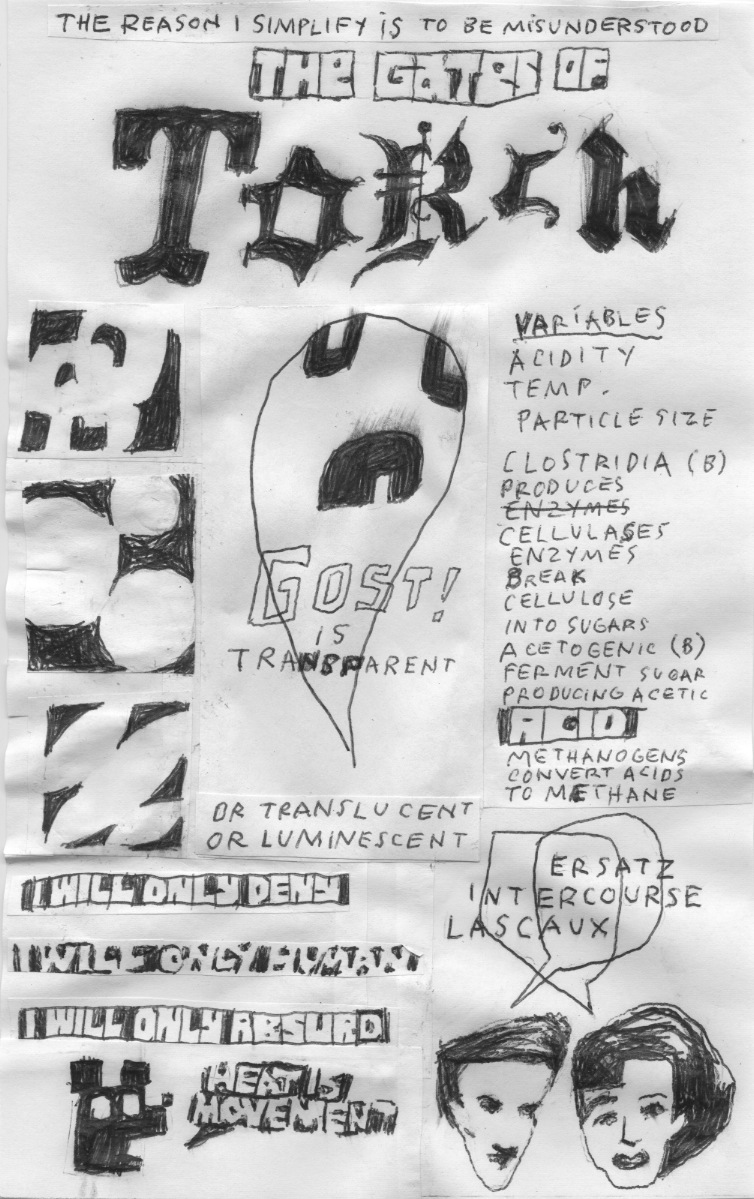 THE REASON I SIMPLIFY iS TO BE MiSUNDERSTOOD
THE GATES OF
ToRch
VARiABLES
ACIDITY
TEMP.
PARTICLE SIZE
CLOSTRIDIA (B)
PRODUCES
ENZYMES
CELLULASES
ENZYMES
BREAK
CELLULOSE
INTO SUGARS
ACETOGENIC (B)
FERMENT SUGAR
PRODUCING ACETIC
ACID
METHANOGENS
CONVERT ACIDS
TO METHANE
GOST!
iS
TRANSPARENT
OR TRANSLUCENT
OR LUMINESCENT
I WILL ONLY DENY
I WILL ONLY HUMAN
I WILL ONLY ABSURD
HEAT IS
MOVEMENT
ERSATZ
INTERCOURSE
LASCAUX